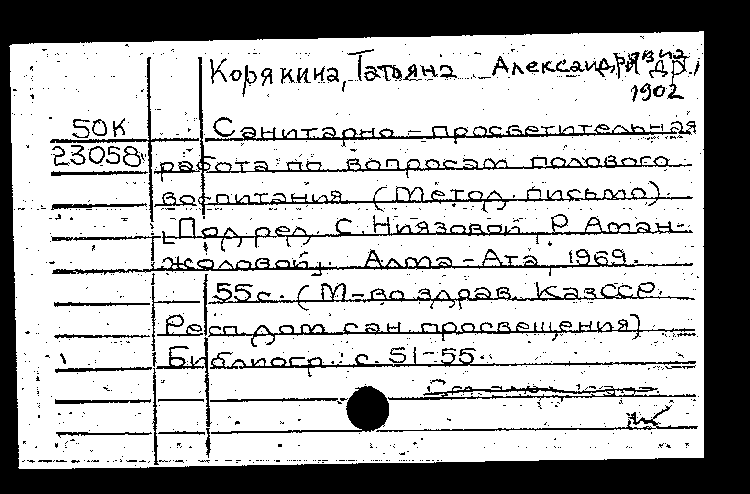 Корякина, Татьяна Александровна и др.,
1902
50К
23058
Санитарно-просветительная
работа по вопросам полового
воспитания. (Метод. письмо).
[Под ред. С. Ниязовой, Р. Аман-
жоловой]. Алма-Ата, 1969.
55 с. (М-во здрав. КазССР.
Респ. дом сан. просвещения)
Библиогр.: с. 51-55.